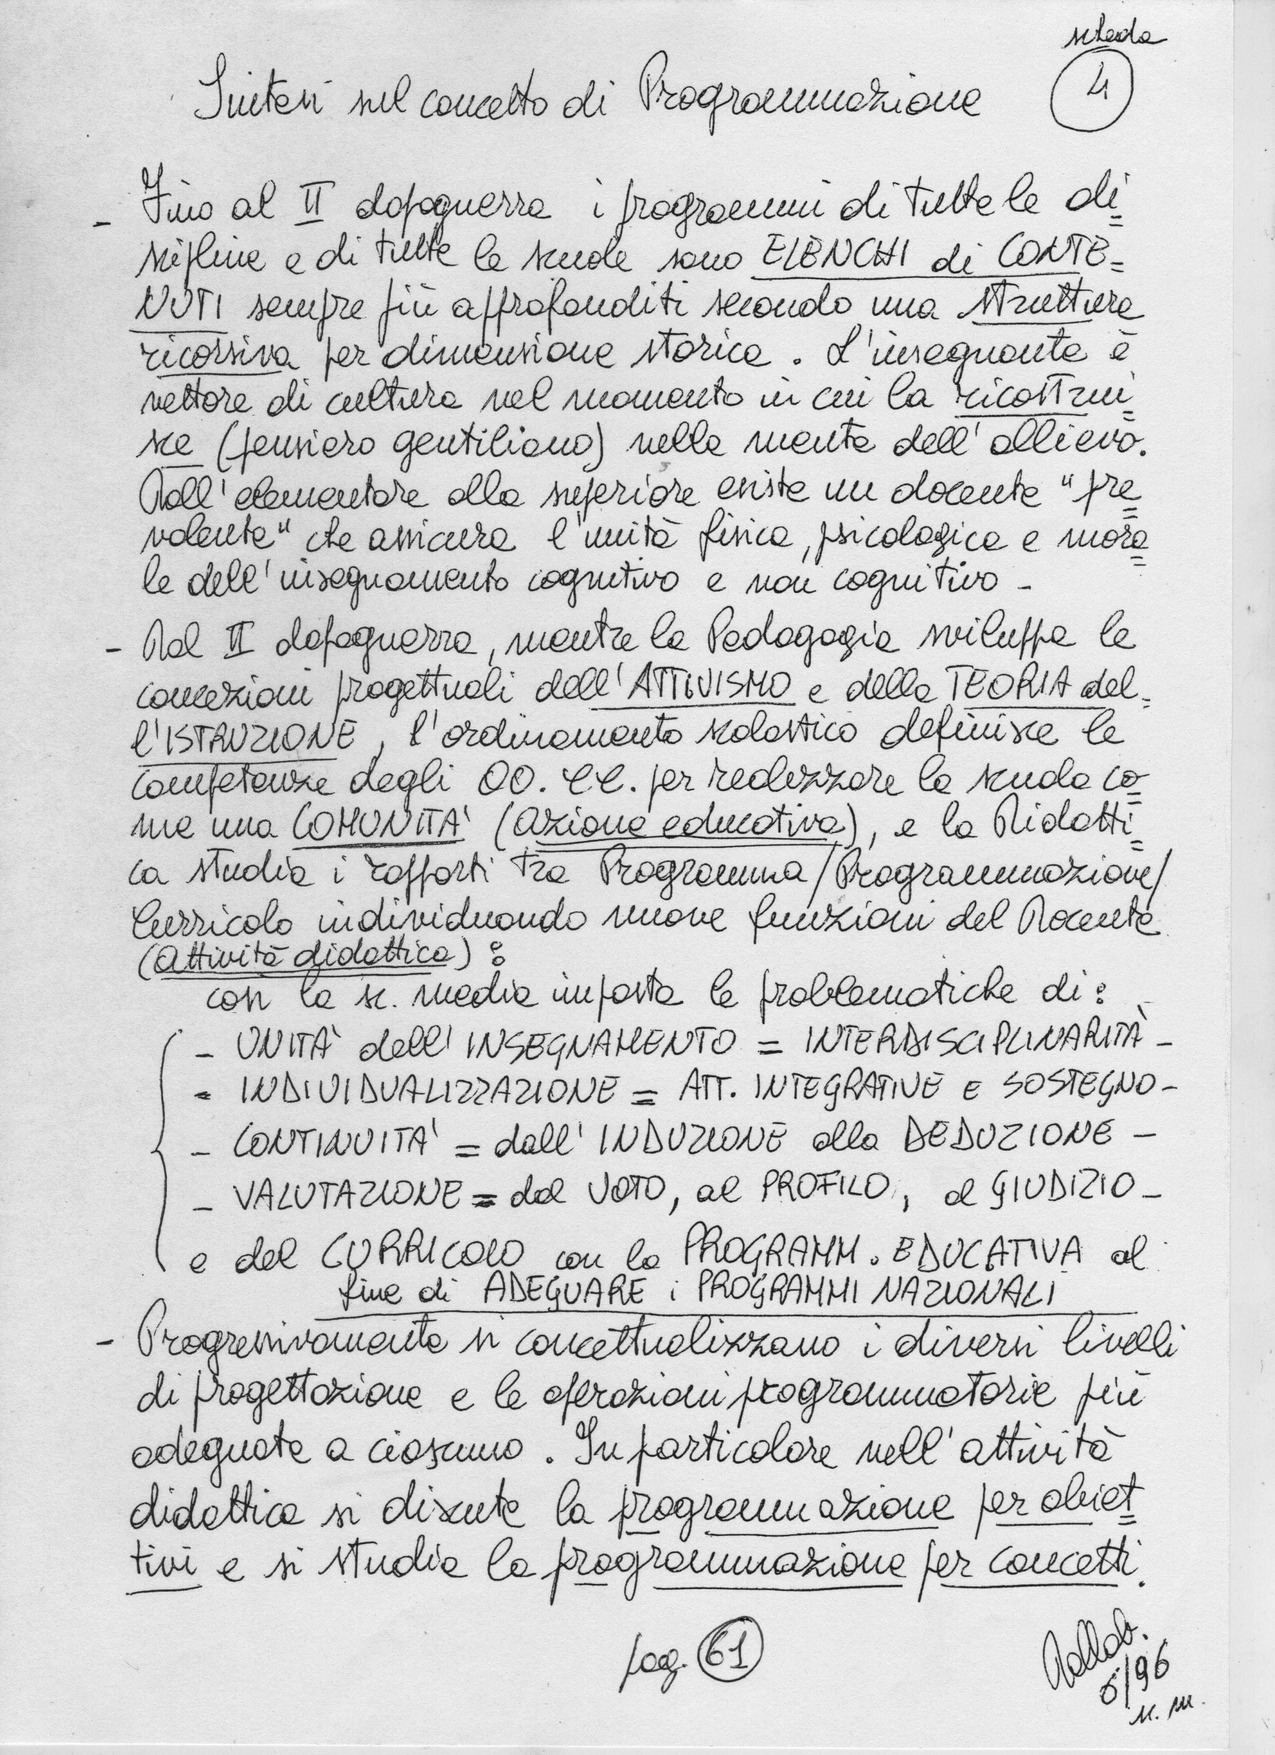 scheda
4
Sintesi sul concetto di Programmazione
- Fino al II dopoguerra i programmi di tutte le di=
scipline e di tutte le scuole sono ELENCHI di CONTE=
NUTI sempre più approfonditi secondo una struttura
ricorsiva per dimensione storica. L'insegnante è
vettore di cultura nel momento in cui la ricostrui=
sce (pensiero gentiliano) nella mente dell'allievo.
Dall'elementare alla superiore esiste un docente "pre=
valente" che assicura l'unità fisica, psicologica e mora=
le dell'insegnamento cognitivo e non cognitivo -
- Dal II dopoguerra, mentre la Pedagogia sviluppa le
concezioni progettuali dell'ATTIVISMO e della TEORIA del=
l'ISTRUZIONE, l'ordinamento scolastico definisce le
competenze degli OO. CC. per realizzare la scuola co=
me una COMUNITA' (azione educativa), e la Didatti=
ca studia i rapporti tra Programma/Programmazione/
Curricolo individuando nuove funzioni del Docente
(attività didattica):
con la sc. media imposta le problematiche di:
- UNITA' dell'INSEGNAMENTO = INTERDISCIPLINARITÀ -
- INDIVIDUALIZZAZIONE = ATT. INTEGRATIVE E SOSTEGNO -
- CONTINUITA' = dall'INDUZIONE alla DEDUZIONE -
- VALUTAZIONE = dal VOTO, al PROFILO, al GIUDIZIO -
e del CURRICOLO con la PROGRAMM. EDUCATIVA al
fine di ADEGUARE i PROGRAMMI NAZIONALI
- Progressivamente si concettualizzano i diversi livelli
di progettazione e le operazioni programmatorie più
adeguate a ciascuno. In particolare nell'attività
didattica si discute la programmazione per obiet=
tivi e si studia la programmazione per concetti.
pag. 61
6/96